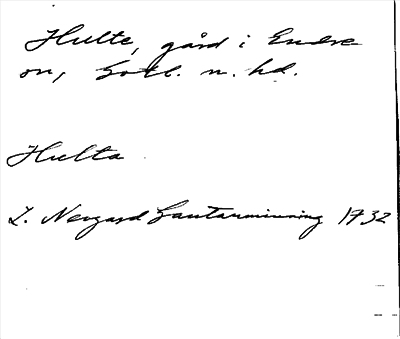 Hulte, gård i Endre
sn, Gotl. n. hd.
Hulta
L. Nergard Lantarminning 1732